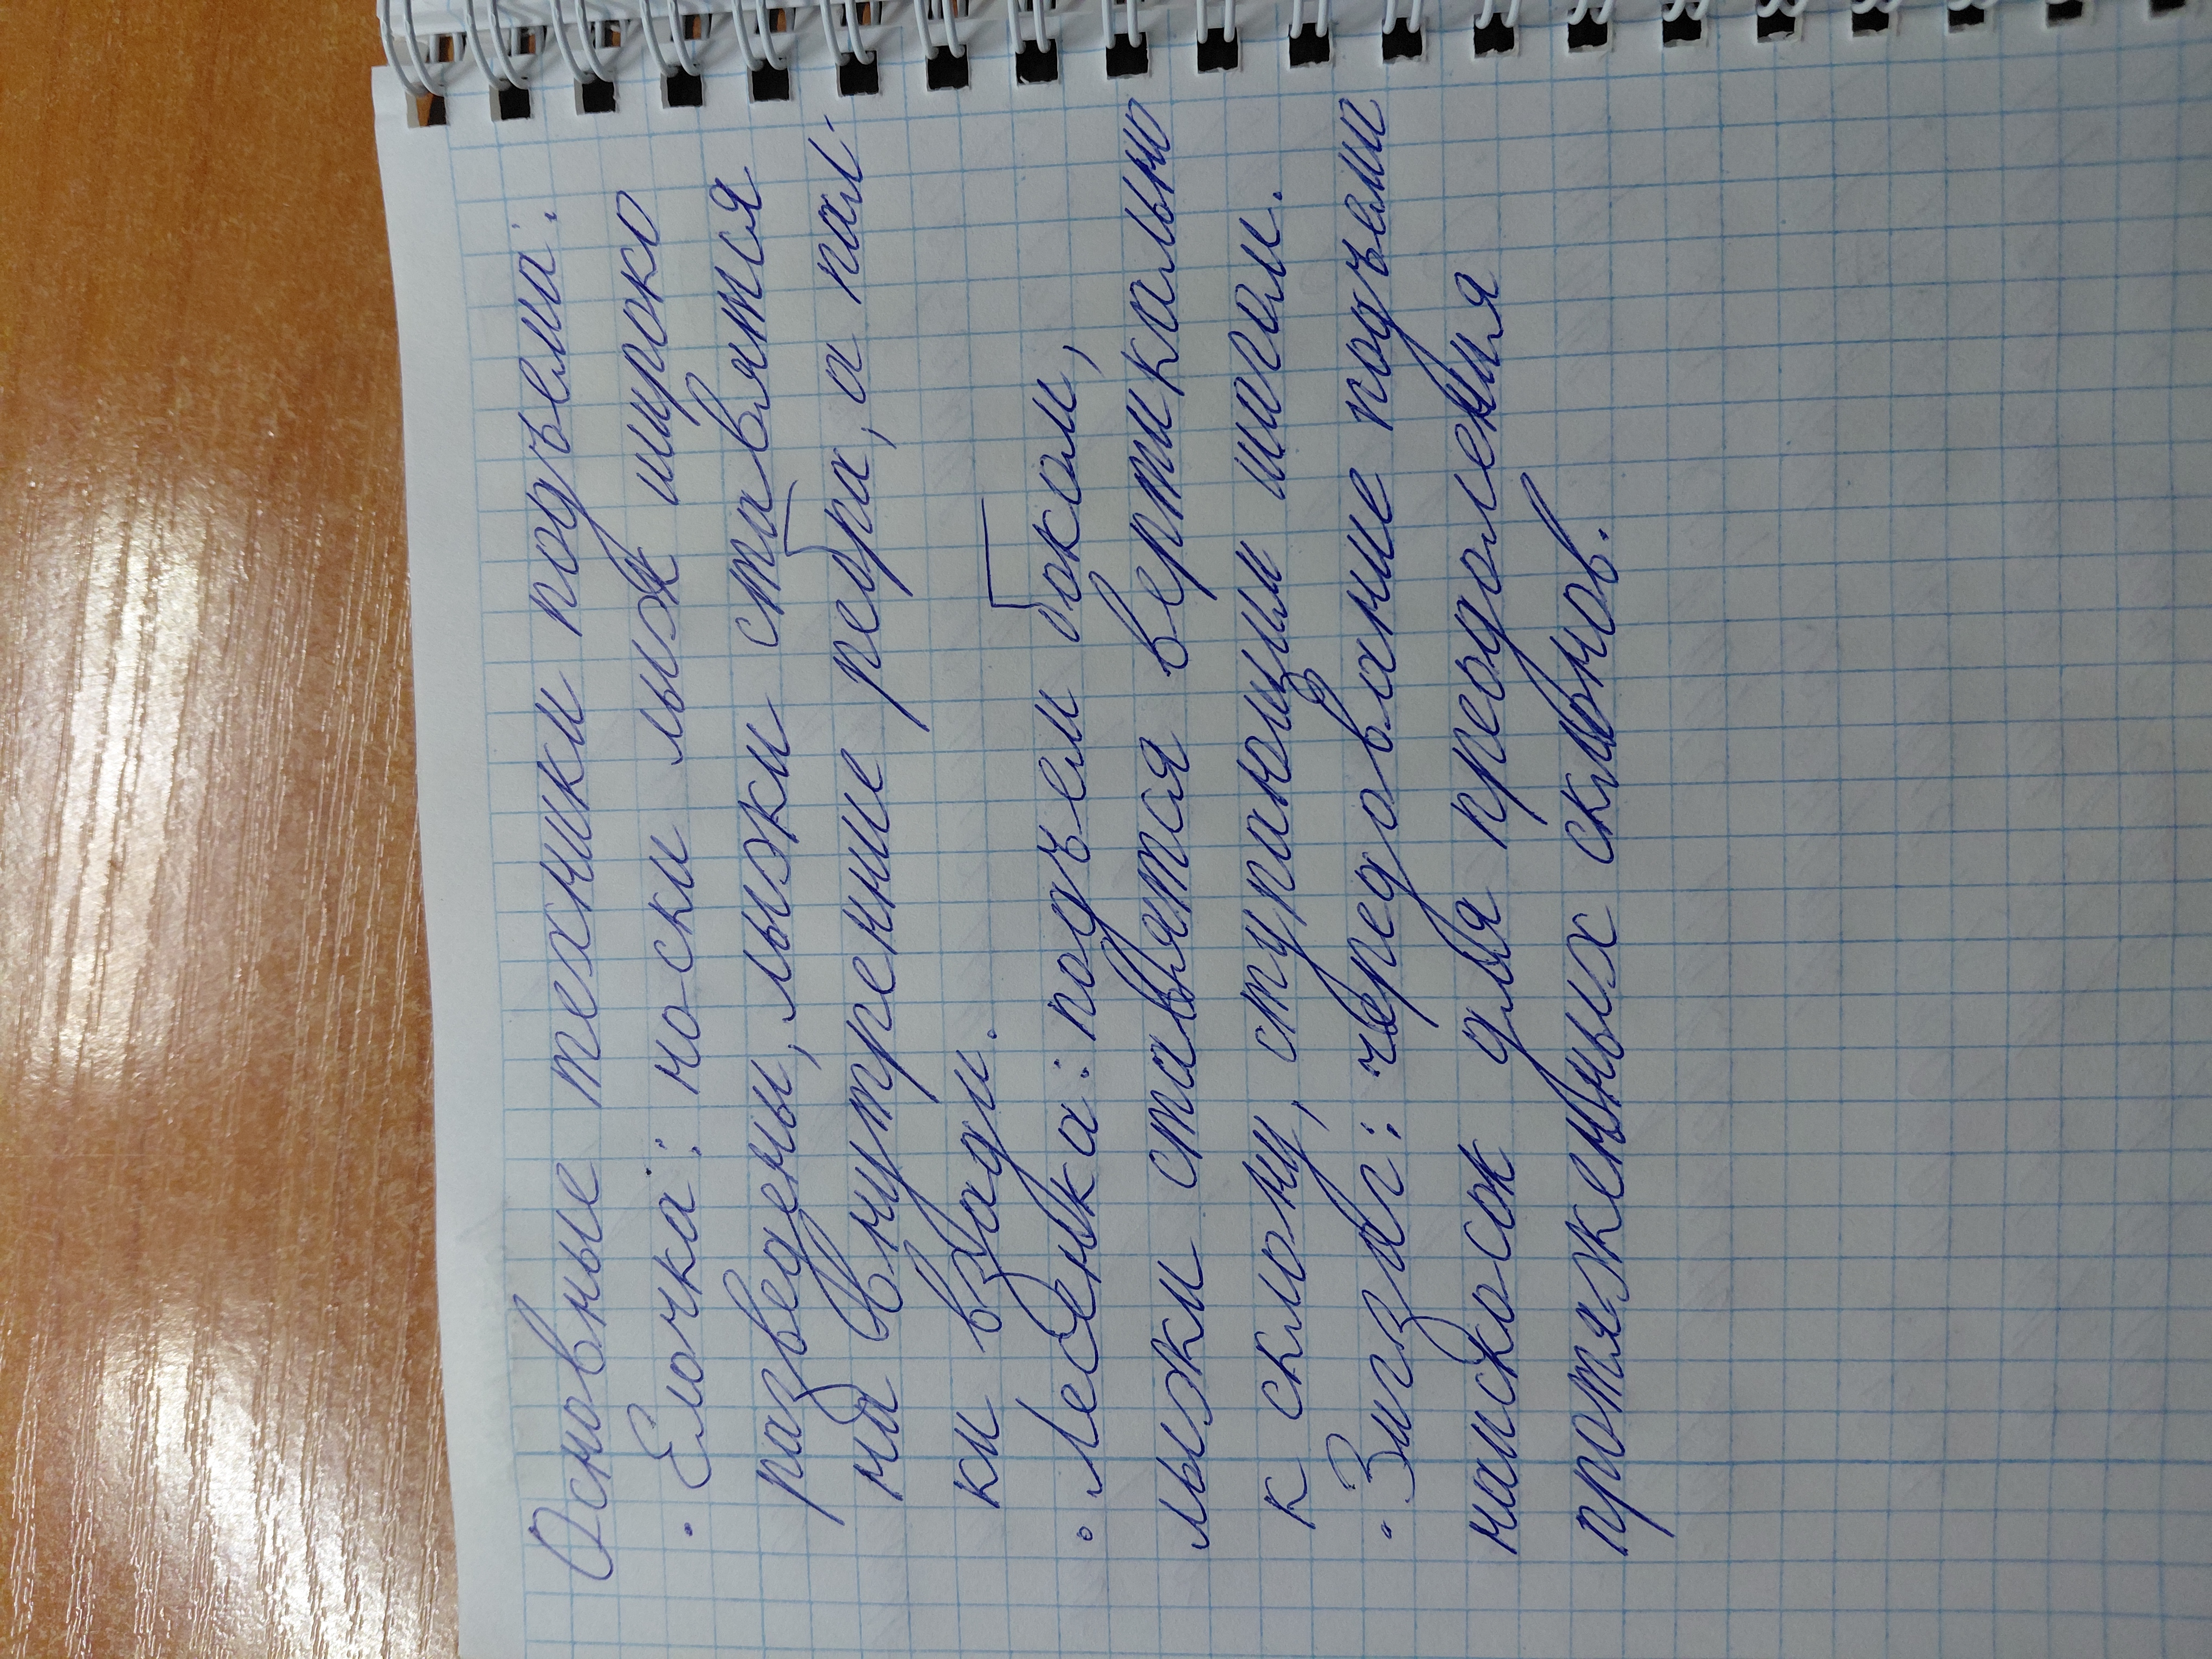 Основные техники подъема:
• Елочка: носки лыж широко
разведены, лыжи ставятся
на внутренние ребра, а пал-
ки взади.
• Лесенка: подъем боком,
лыжи ставятся вертикально
к склону, ступающим шагом.
• Зигзаг: чередование подъема
наискосок для преодоления
протяженных склонов.